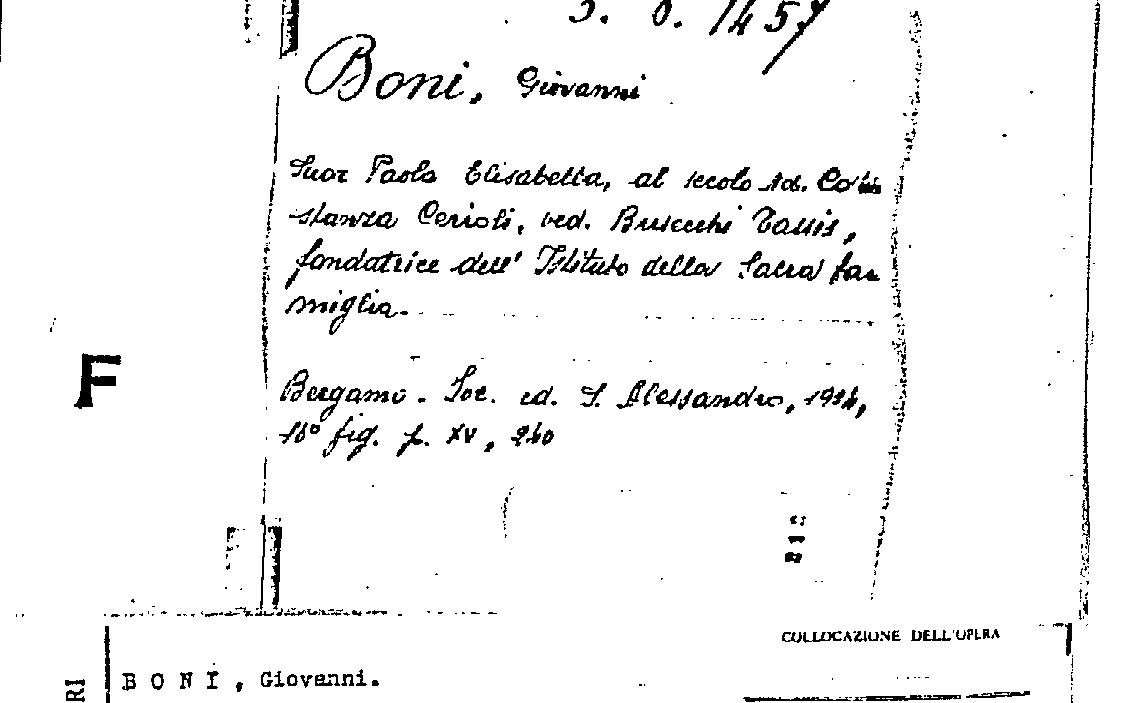 5. O. 1457
Boni, Giovanni
Suor Paola Elisabetta, al secolo Co
stanza Cerioli, ved. Busecchi Tassis,
fondatrice dell' Istituto della Sacra Fa
miglia.
F
Bergamo. Soc. ed. S. Alessandro,
16° fig. p. XV, 240
COLLOCAZIONE DELL'OPERA
BONI, Giovanni.
RI